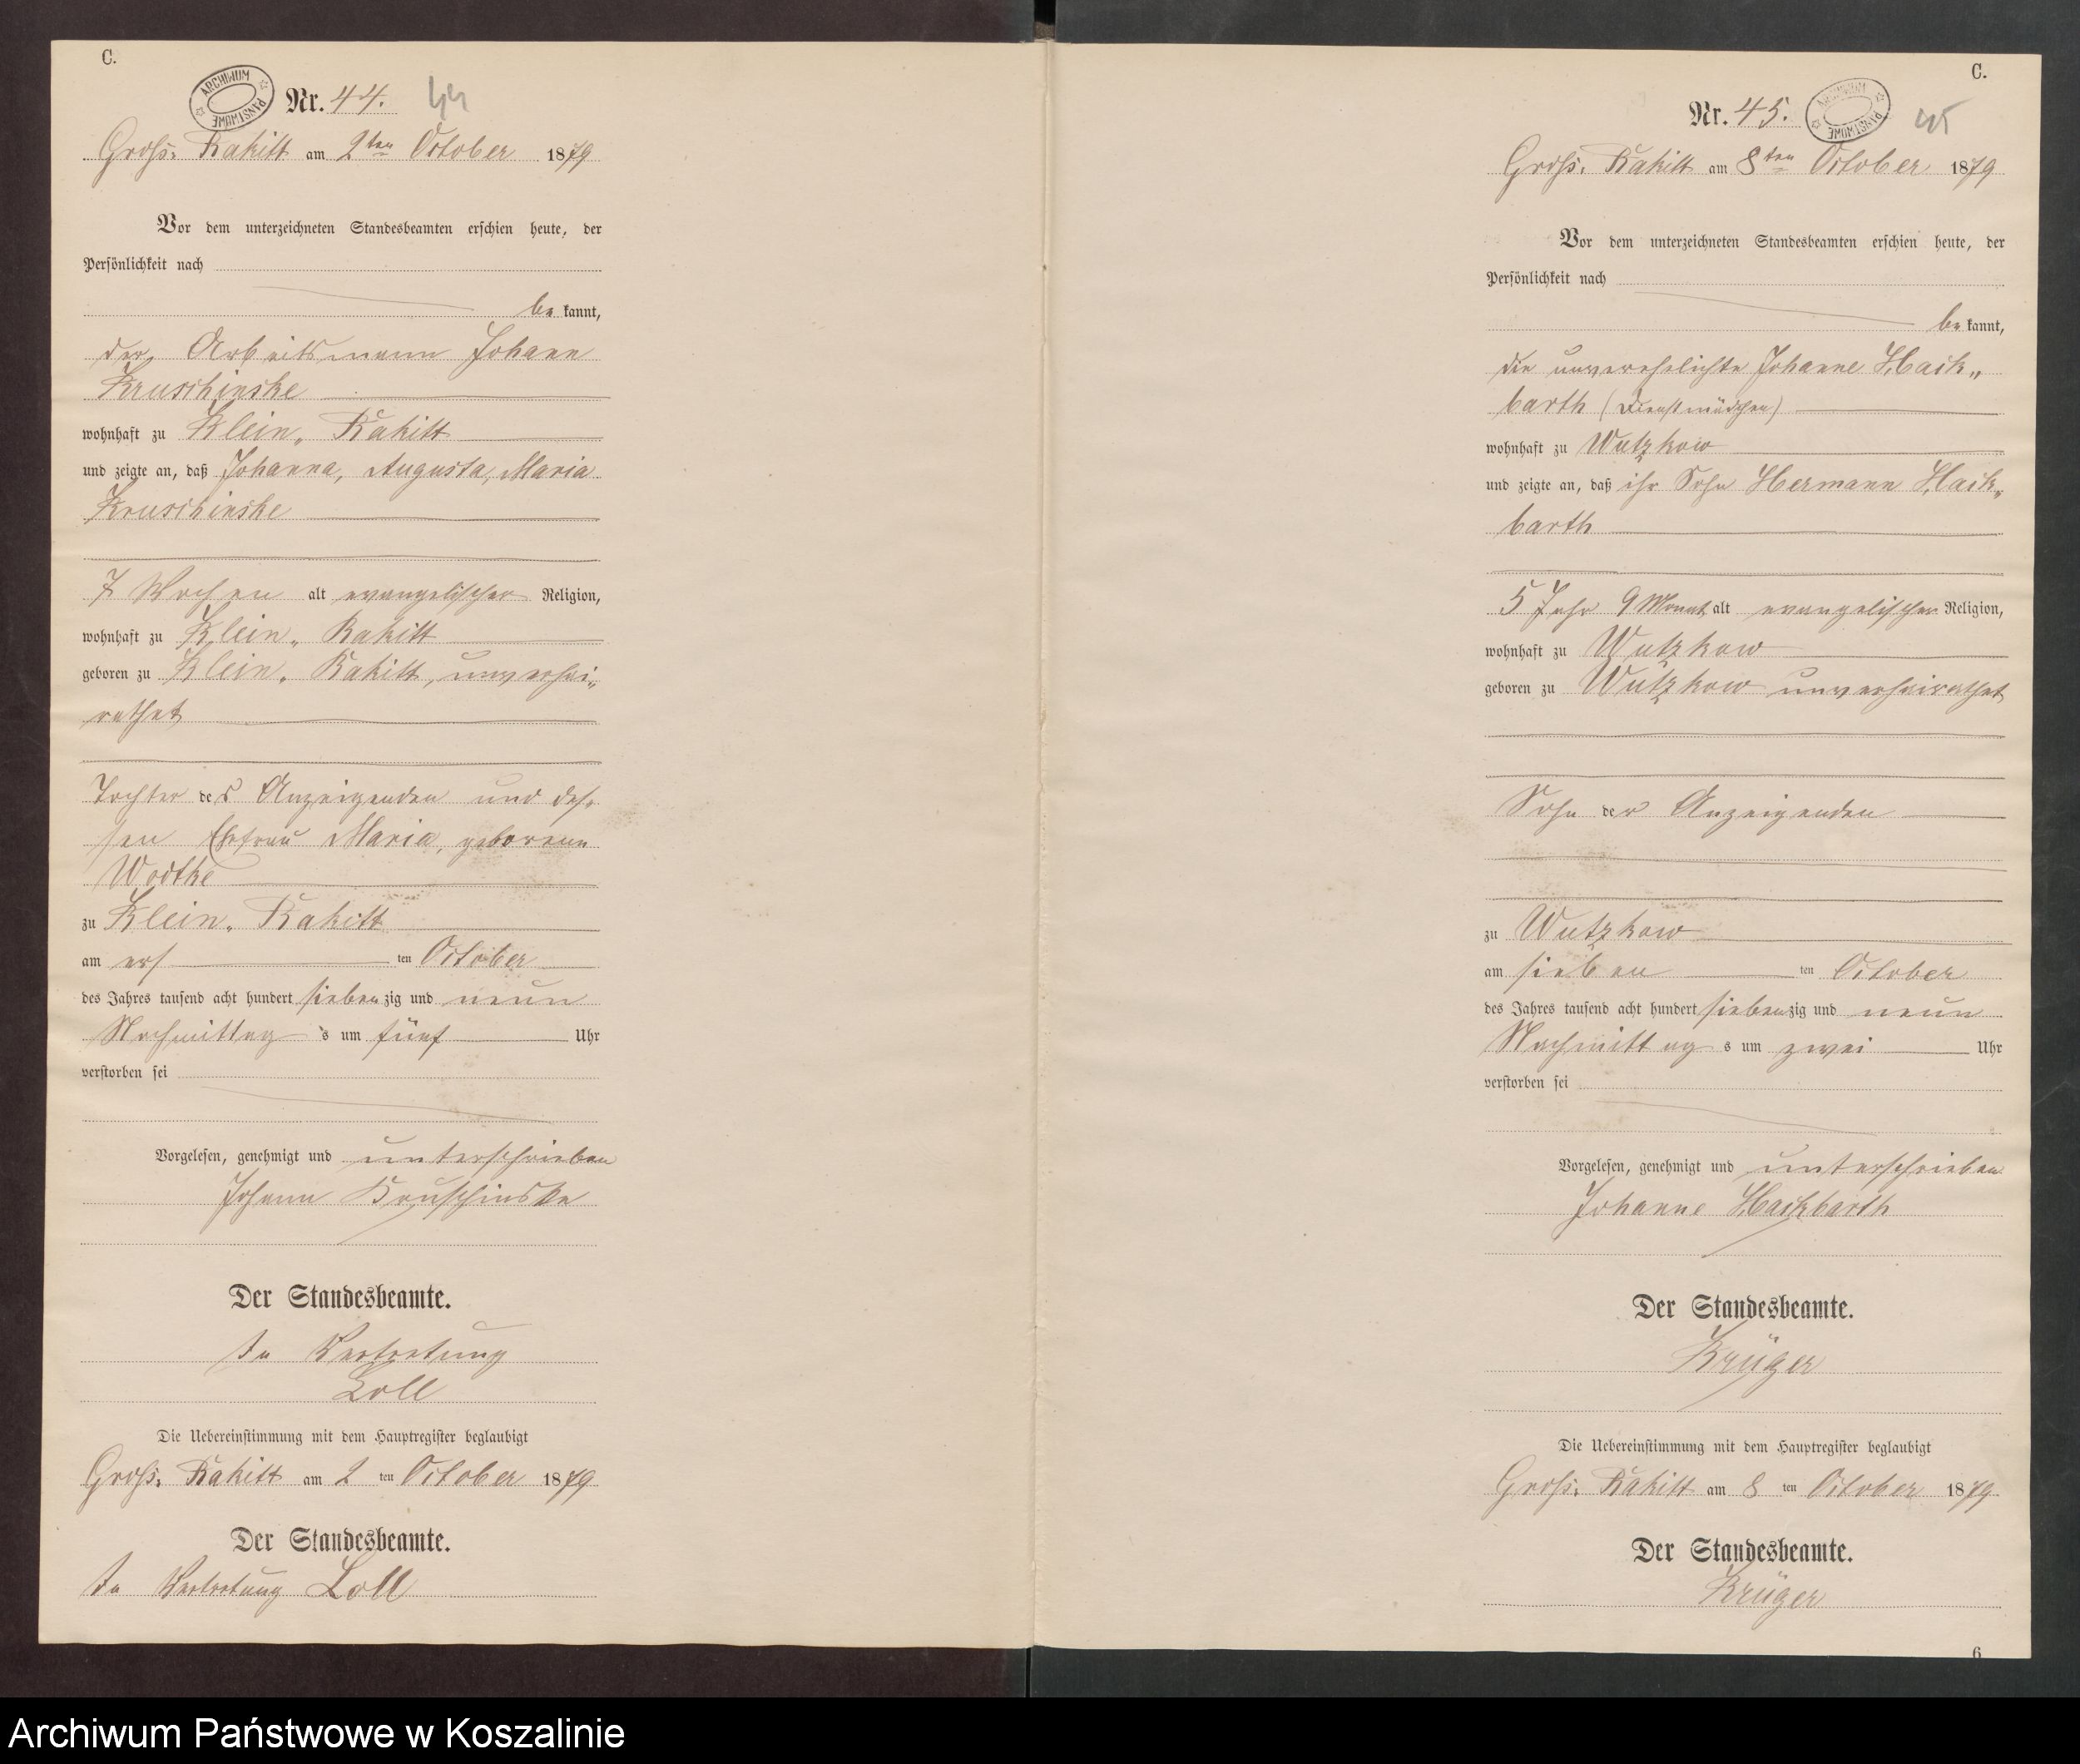 C.
ARCHIWUM PAŃSTWOWE
Nr. 44. 44
Groß. Rakitt am 2ten October 1879
Vor dem unterzeichneten Standesbeamten erschien heute, der
Persönlichkeit nach
be kannt,
der Arbeitsmann Johann
Kruschinske
wohnhaft zu Klein. Rakitt
und zeigte an, daß Johanna, Augusta, Maria
Kruschinske
7 Wochen alt evangelischer Religion,
wohnhaft zu Klein. Rakitt
geboren zu Klein. Rakitt, unverhei-
rathet
Tochter des Anzeigenden und des-
sen Ehefrau Maria, geborenen
Wodtke
zu Klein. Rakitt
am ers ten October
des Jahres tausend acht hundert sieben zig und neun
Nachmittag s um fünf Uhr
verstorben sei
Vorgelesen, genehmigt und unterschrieben
Johann Kruschinske
Der Standesbeamte.
In Vertretung
Loll
Die Uebereinstimmung mit dem Hauptregister beglaubigt
Groß. Rakitt am 2 ten October 1879
Der Standesbeamte.
In Vertretung Loll
C.
Nr. 45. ARCHIWUM PAŃSTWOWE 45
Groß. Rakitt am 8ten October 1879
Vor dem unterzeichneten Standesbeamten erschien heute, der
Persönlichkeit nach
be kannt,
die unverehelichte Johanne Hack-
barth (Dienstmädchen)
wohnhaft zu Wutzkow
und zeigte an, daß ihr Sohn Hermann Hack-
barth
5 Jahr 9 Monat alt evangelischer Religion,
wohnhaft zu Wutzkow
geboren zu Wutzkow unverheirathet
Sohn der Anzeigenden
zu Wutzkow
am sieben ten October
des Jahres tausend acht hundert siebenzig und neun
Nachmittag s um zwei Uhr
verstorben sei
Vorgelesen, genehmigt und unterschrieben
Johanne Hackbarth
Der Standesbeamte.
Krüger
Die Uebereinstimmung mit dem Hauptregister beglaubigt
Groß. Rakitt am 8 ten October 1879
Der Standesbeamte.
Krüger
6
Archiwum Państwowe w Koszalinie